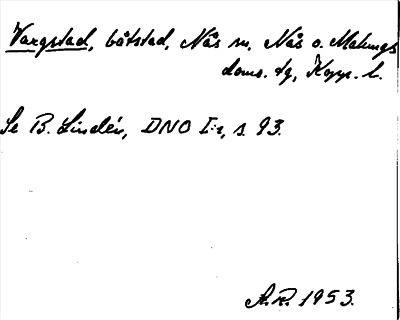 Vargstad, båtstad, Nås sn. Nås o. Malungs
doms. tg, Kopp. l.
Se B. Lindén, DNO I:1, s. 93.
A.R. 1953.